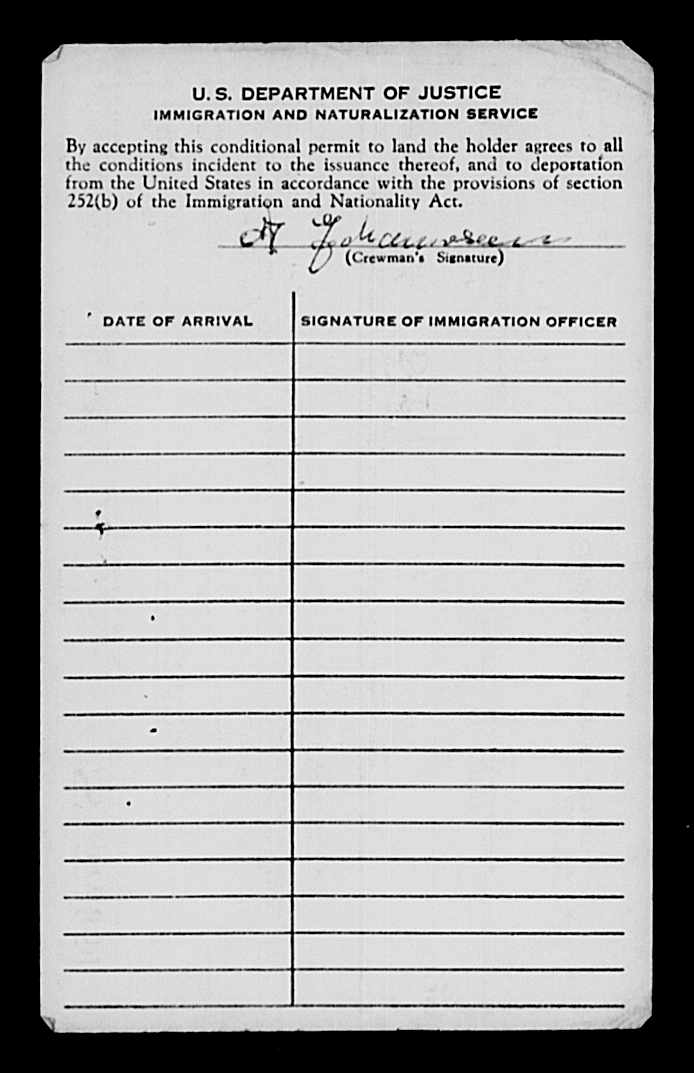 U. S. DEPARTMENT OF JUSTICE
IMMIGRATION AND NATURALIZATION SERVICE
By accepting this conditional permit to land the holder agrees to all
the conditions incident to the issuance thereof, and to deportation
from the United States in accordance with the provisions of section
252(b) of the Immigration and Nationality Act.
(Crewman's Signature)
DATE OF ARRIVAL SIGNATURE OF IMMIGRATION OFFICER